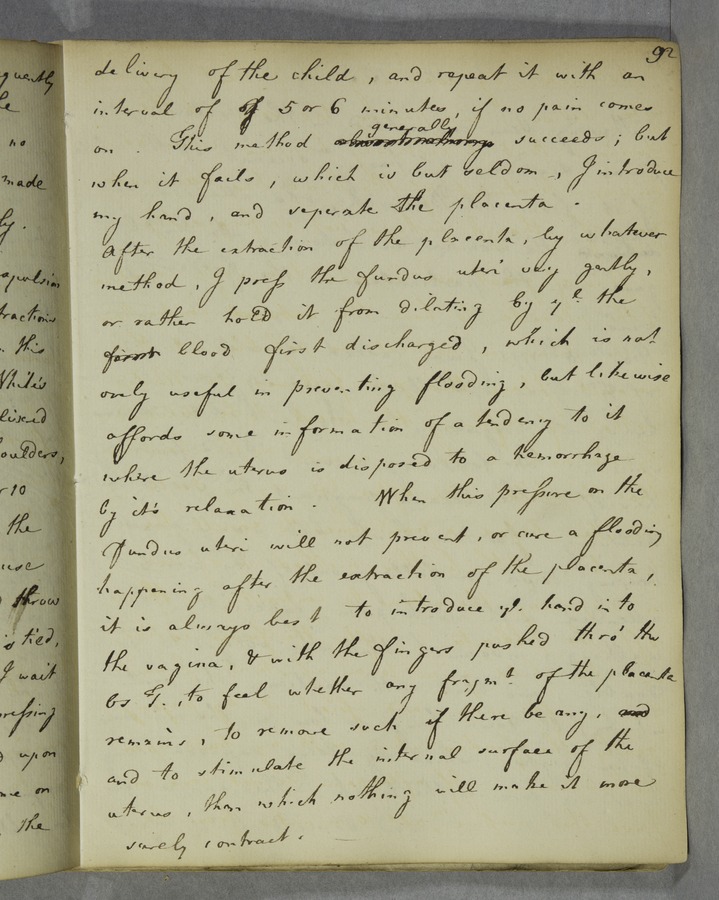 92
delivery of the child, and repeat it with an
interval of of 5 or 6 minutes, if no pain comes
on. This method generally succeeds; but
when it fails, which is but seldom, I introduce
my hand, and seperate the placenta.
After the extraction of the placenta, by whatever
method, I press the fundus uteri very gently,
or rather hold it from dilating by ye. the
first blood first discharged, which is not
only useful in preventing flooding, but likewise
affords some information of a tendency to it
where the uterus is disposed to a hemorrhage
by it's relaxation. When this pressure on the
fundus uteri will not prevent, or cure a flooding
happening after the extraction of the placenta,
it is always best to introduce ye. hand into
the vagina, & with the fingers pushed thro' the
os T., to feel whether any fragmt. of the placenta
remains, to remove such if there be any, and
and to stimulate the internal surface of the
uterus, than which nothing will make it more
surely contract.
quently
he
no
made
ly.
expulsion
tractions
. this
While's
livered
oulders,
r 10
the
use
throw
is tied,
I wait
pressing
d upon
me on
the